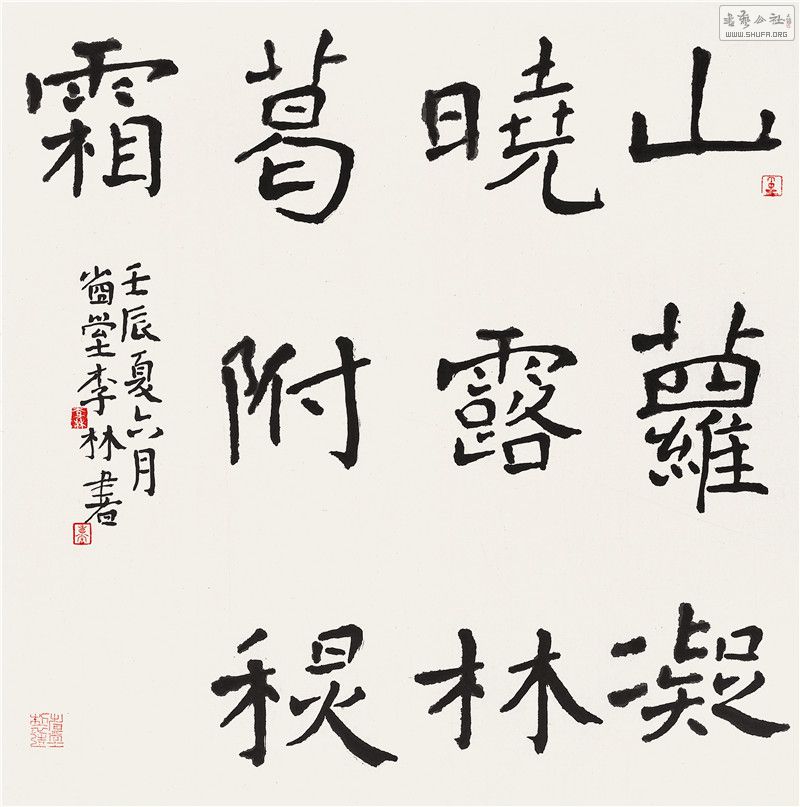 山蘿凝
曉露林
葛附秋
霜
壬辰夏六月
堂李林書
書藝公社
WWW.SHUFA.ORG